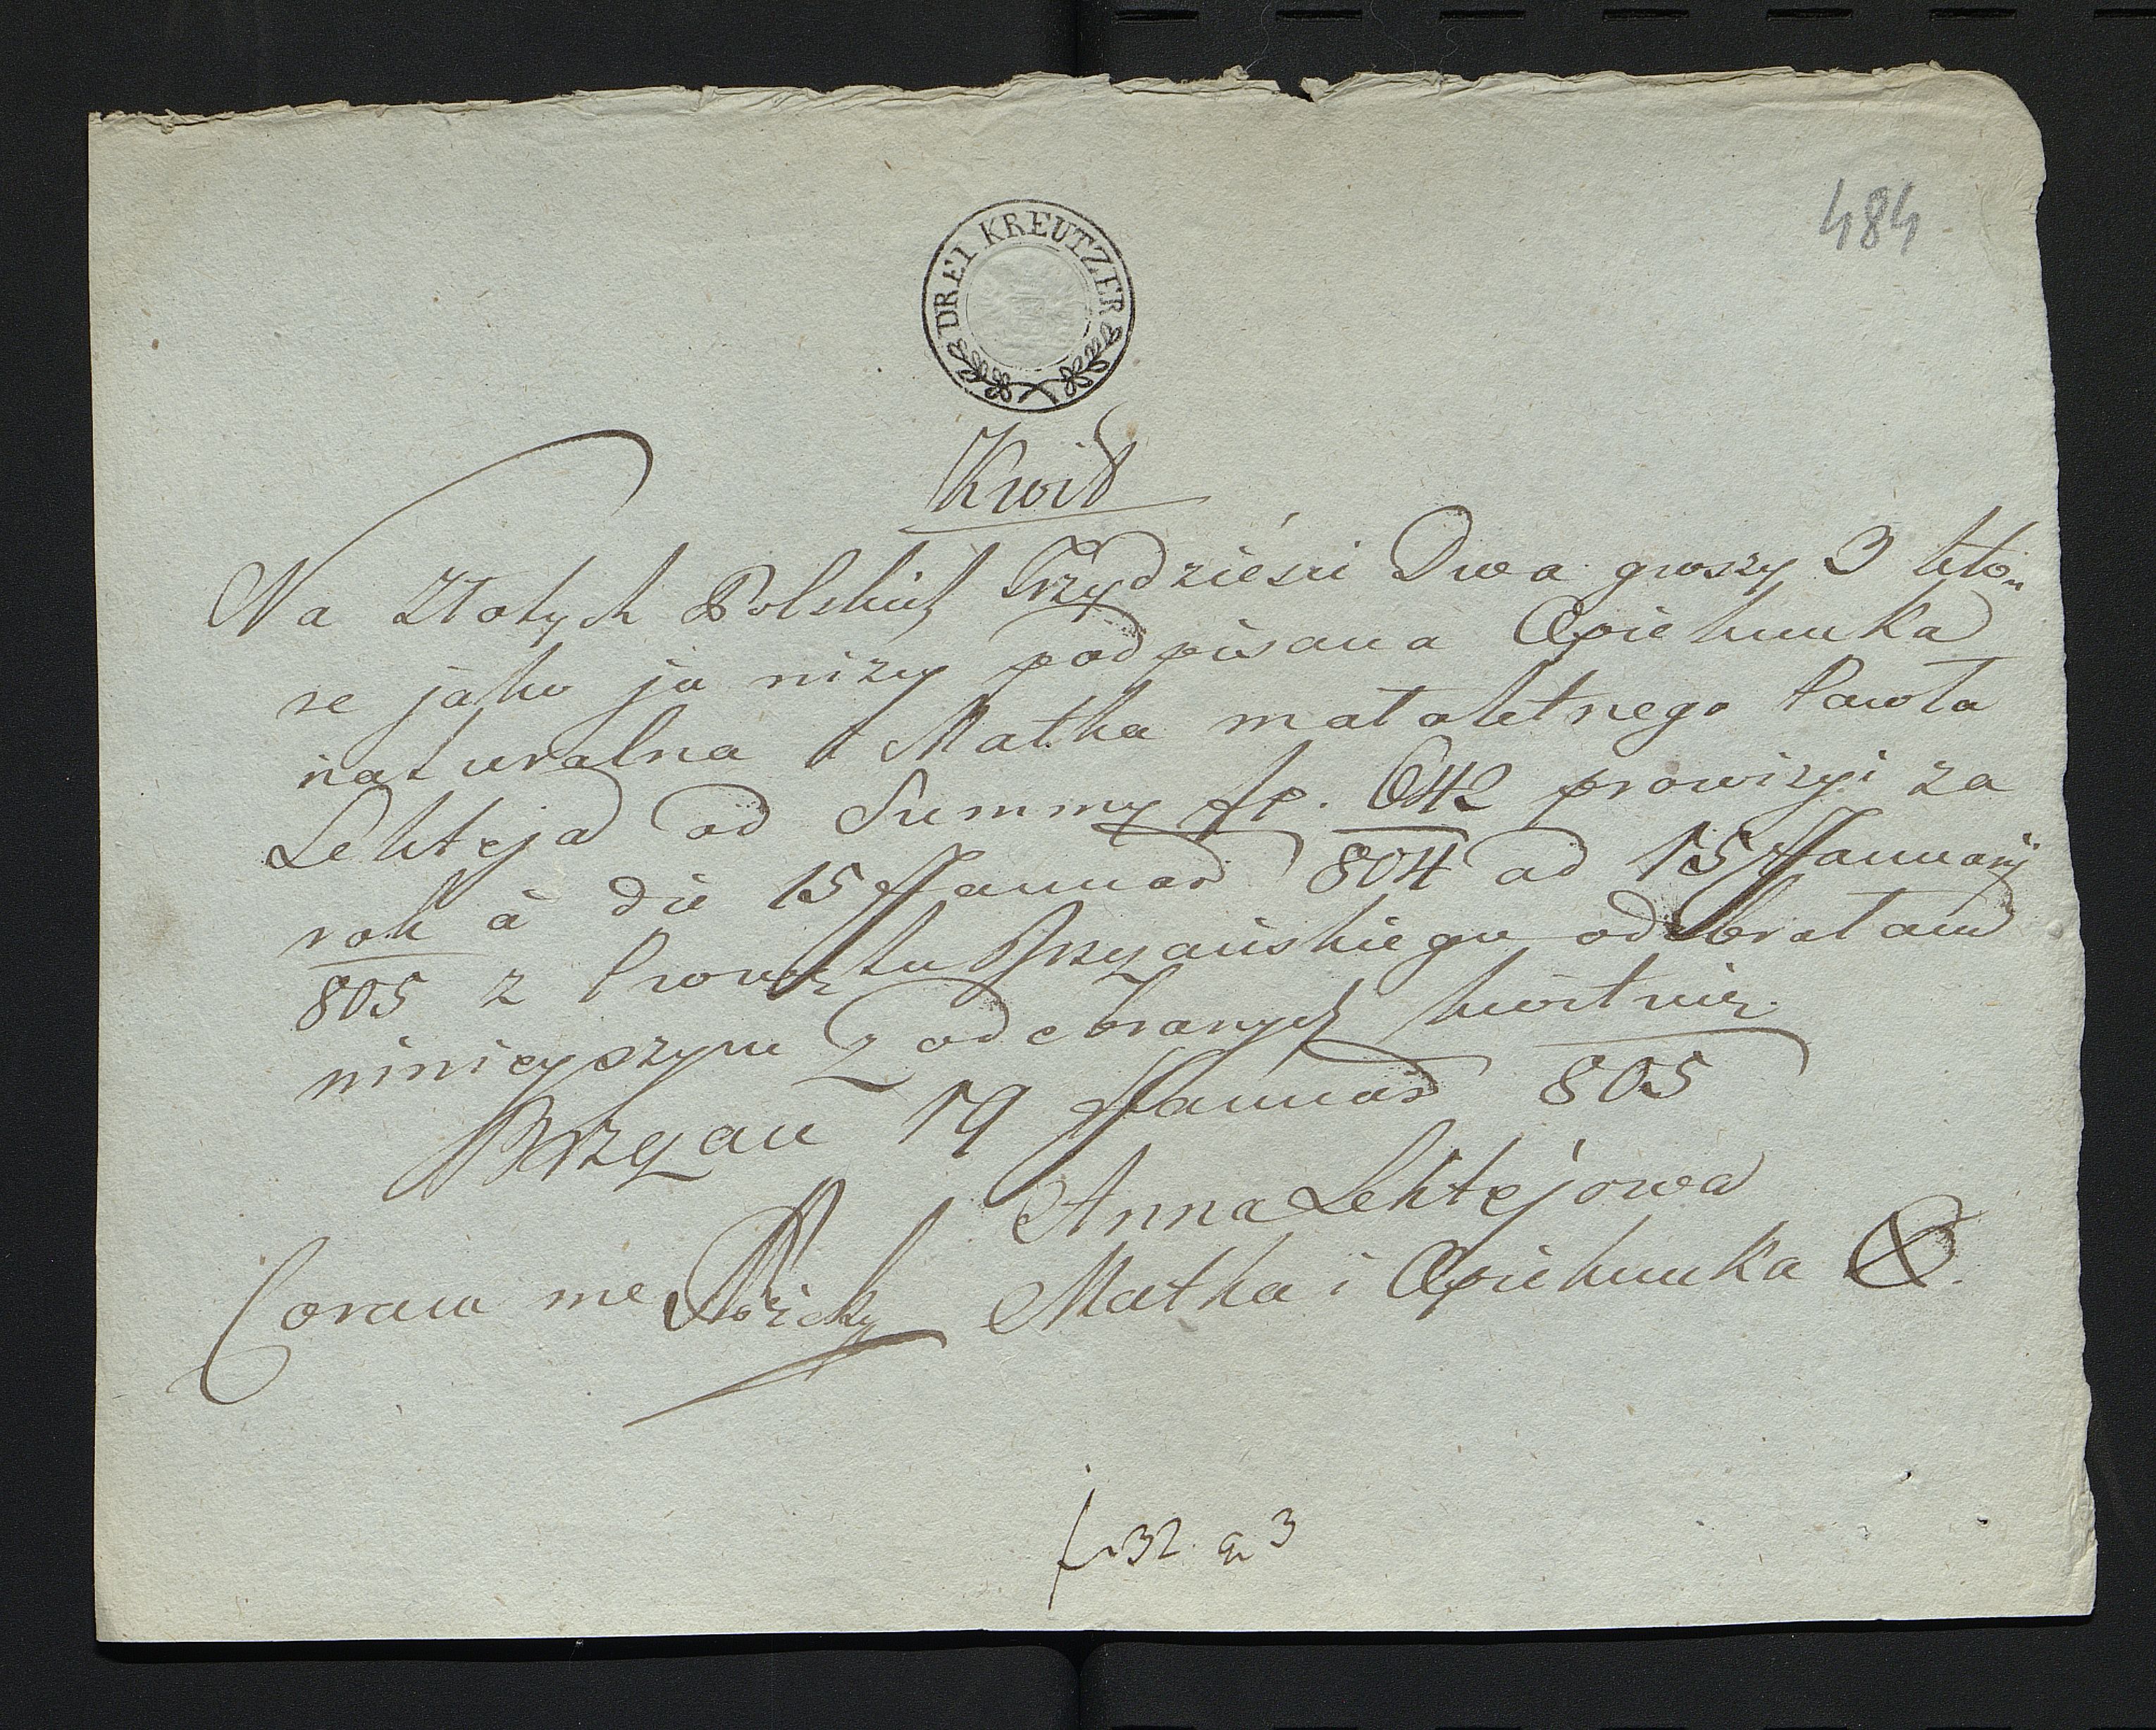 484
DREI KREUTZER
Kwit
Na Złotych Polskich Trzydzieści Dwa groszy 3 któ„
re jako ja niży podpisana Opiekunka
naturalna i Matka małoletnego Pawła
Lekteja od Summy fp. 642 prowizyi za
rok à die 15 Januar 804 ad 15 Januarij
805 z Prowętu Brzęańskiego odebrałam
ninieyszym z odebranych kwituię.
Brzęan 19 Januar 805
Anna Lektejowa
Coram me Matka i Opiekunka
f 32. g 3